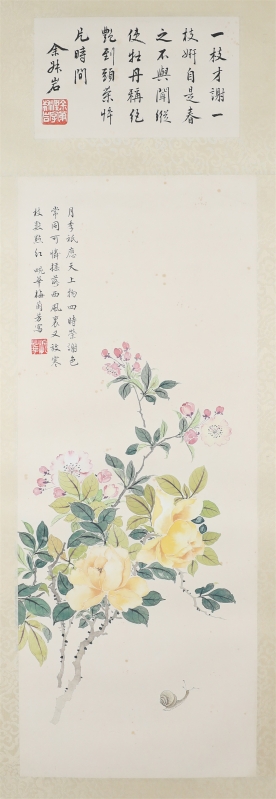 一枝才謝一
枝妍自是春
工不與閒縱
使牡丹稱絕
艷到頭榮悴
片時間
余叔岩
月季祇應天上物四時榮謝色
常同可憐搖落西風裏又放寒
枝數點紅 畹華梅蘭芳寫